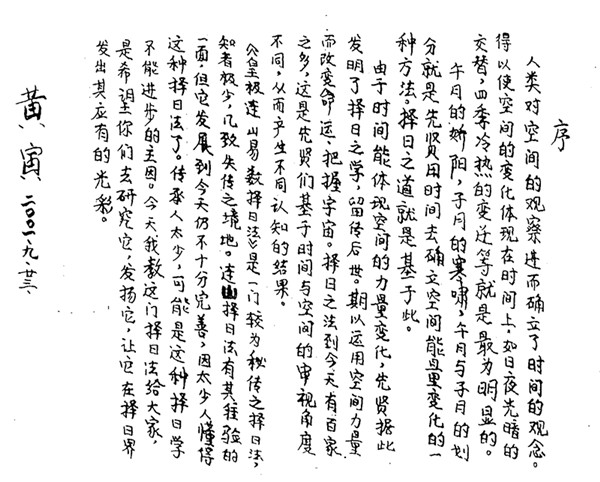 序
人类对空间的观察进而确立了时间的观念。
得以使空间的变化体现在时间上，如日夜光暗的
交替，四季冷热的变迁等就是最为明显的。
午月的娇阳，子月的寒啸，午月与子月的划
分就是先贤用时间去确立空间能量变化的一
种方法。择日之道就是基于此。
由于时间能体现空间的力量变化，先贤据此
发明了择日之学，留传后世。期以运用空间力量
而改变命运、把握宇宙。择日之法到今天有百家
之多，这是先贤们基于时间与空间的审视角度
不同，从而产生不同认知的结果。
《皇极连山易数择日法》是一门较为秘传之择日法，
知者极少，几致失传之境地。连山择日法有其独验的
一面，但它发展到今天仍不十分完善，因太少人懂得
这种择日法了。传承人太少，可能是这种择日学
不能进步的主因。今天我教这门择日法给大家，
是希望你们去研究它，发扬它，让它在择日界
发出其应有的光彩。
黄寅 二〇〇一、九、廿三